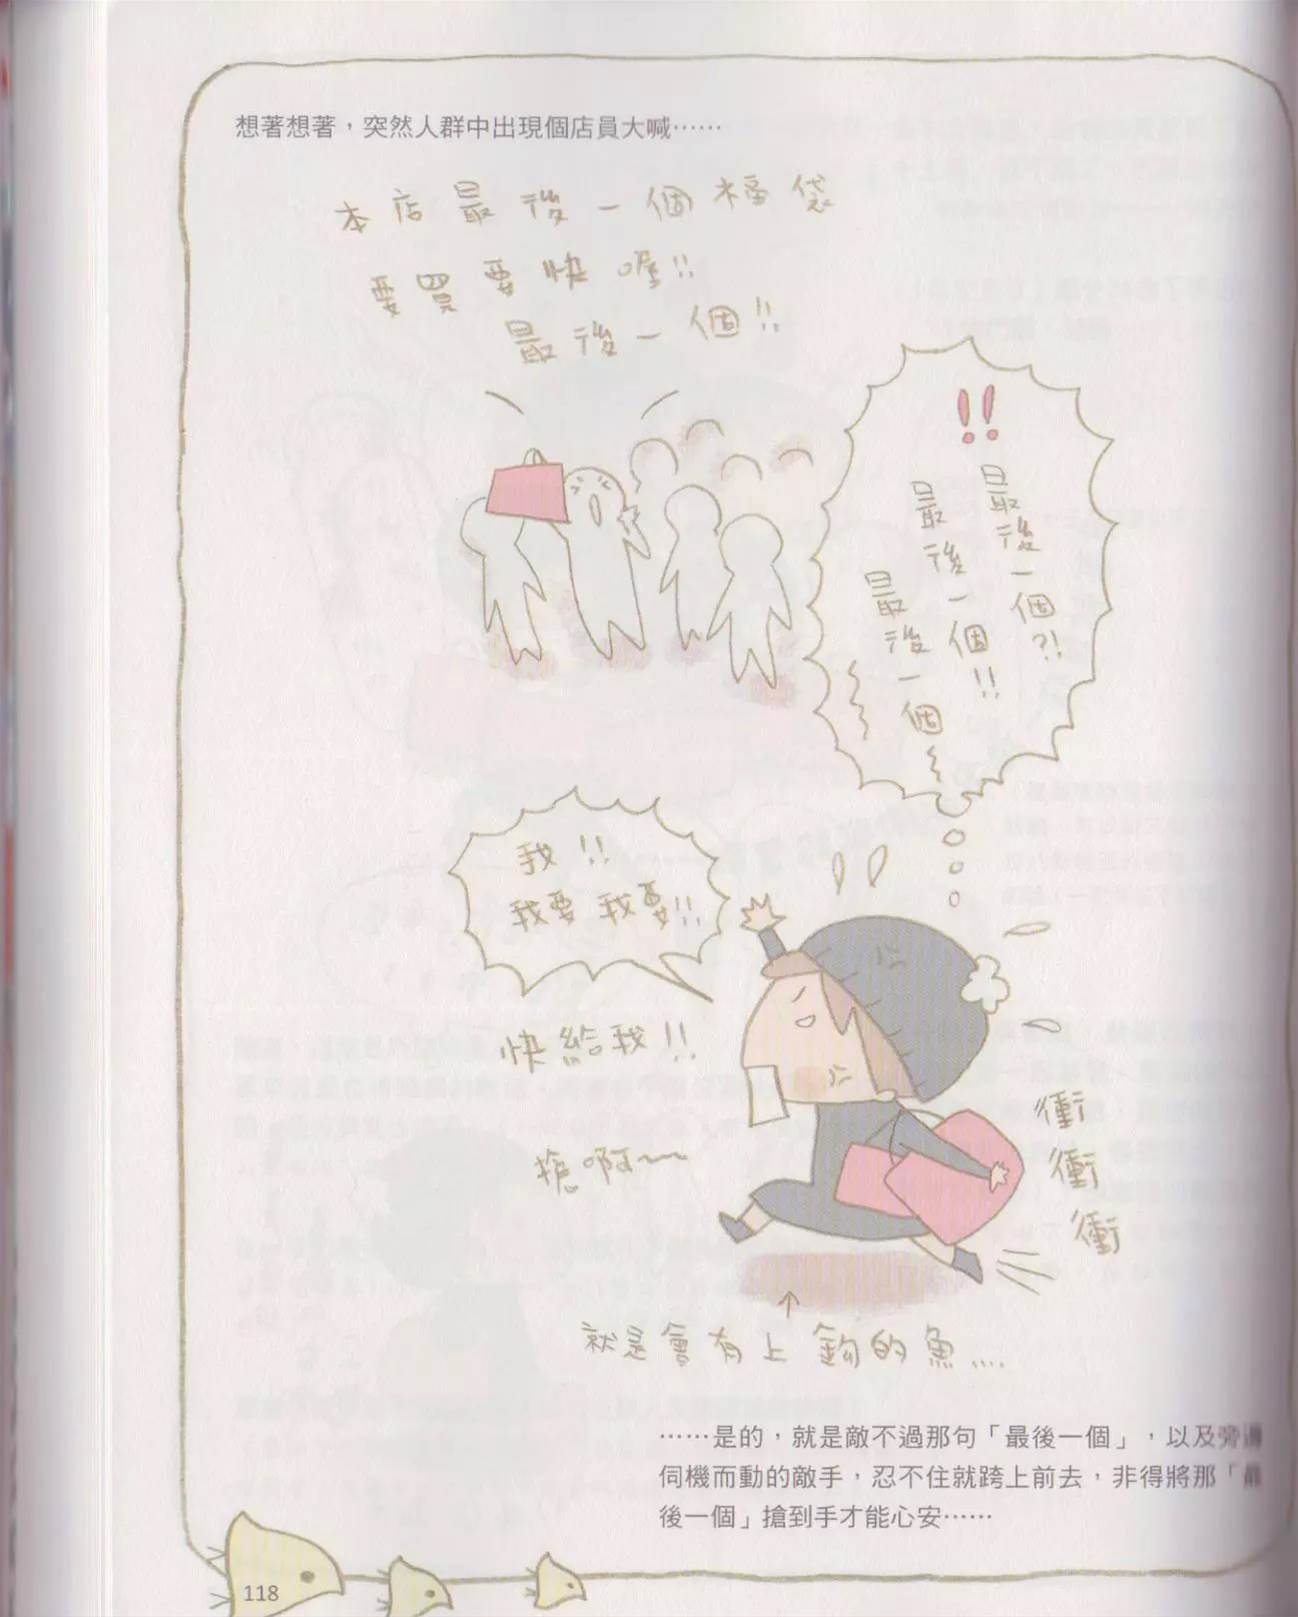 想著想著，突然人群中出現個店員大喊……
本店最後一個福袋
要買要快喔!!
最後一個!!
!!
最後一個?!
最後一個!!
最後一個
我!!
我要我要!!
快給我!!
搶啊~~
衝
衝
衝
↑
就是會有上鉤的魚....
……是的，就是敵不過那句「最後一個」，以及旁邊
伺機而動的敵手，忍不住就跨上前去，非得將那「最
後一個」搶到手才能心安……
118